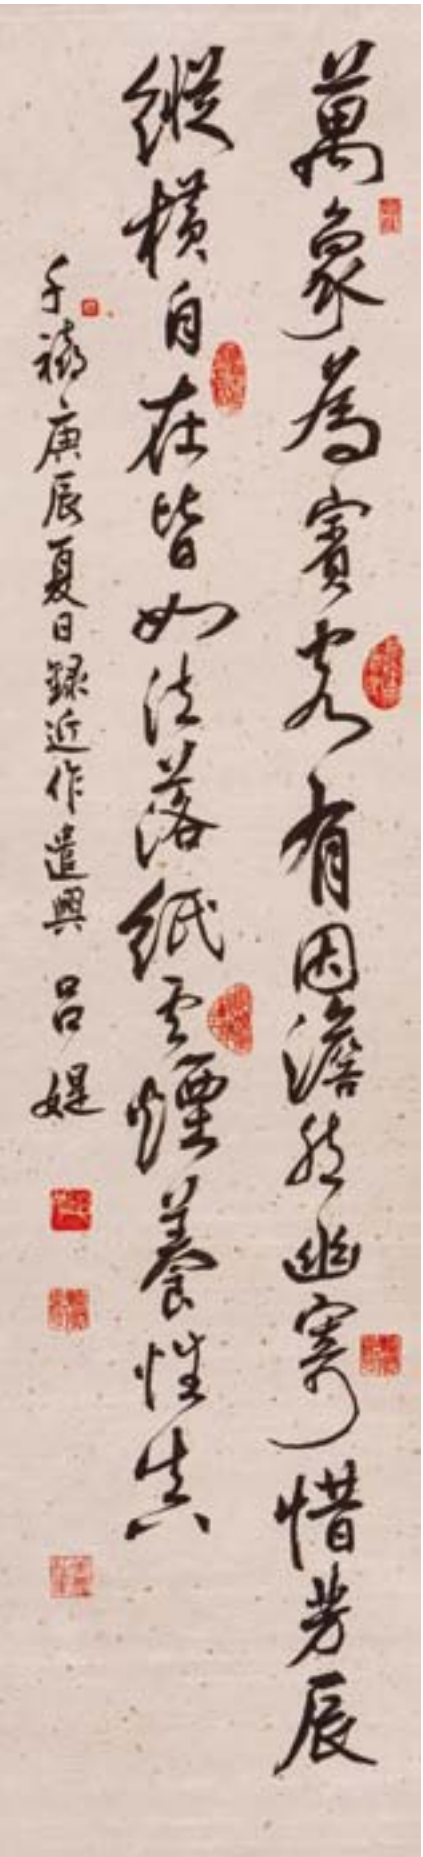 萬象為賓客有因澹然幽寄惜芳辰
縱橫自在皆如法落紙雲煙養性真
千禧庚辰夏日錄近作遣興 呂媞